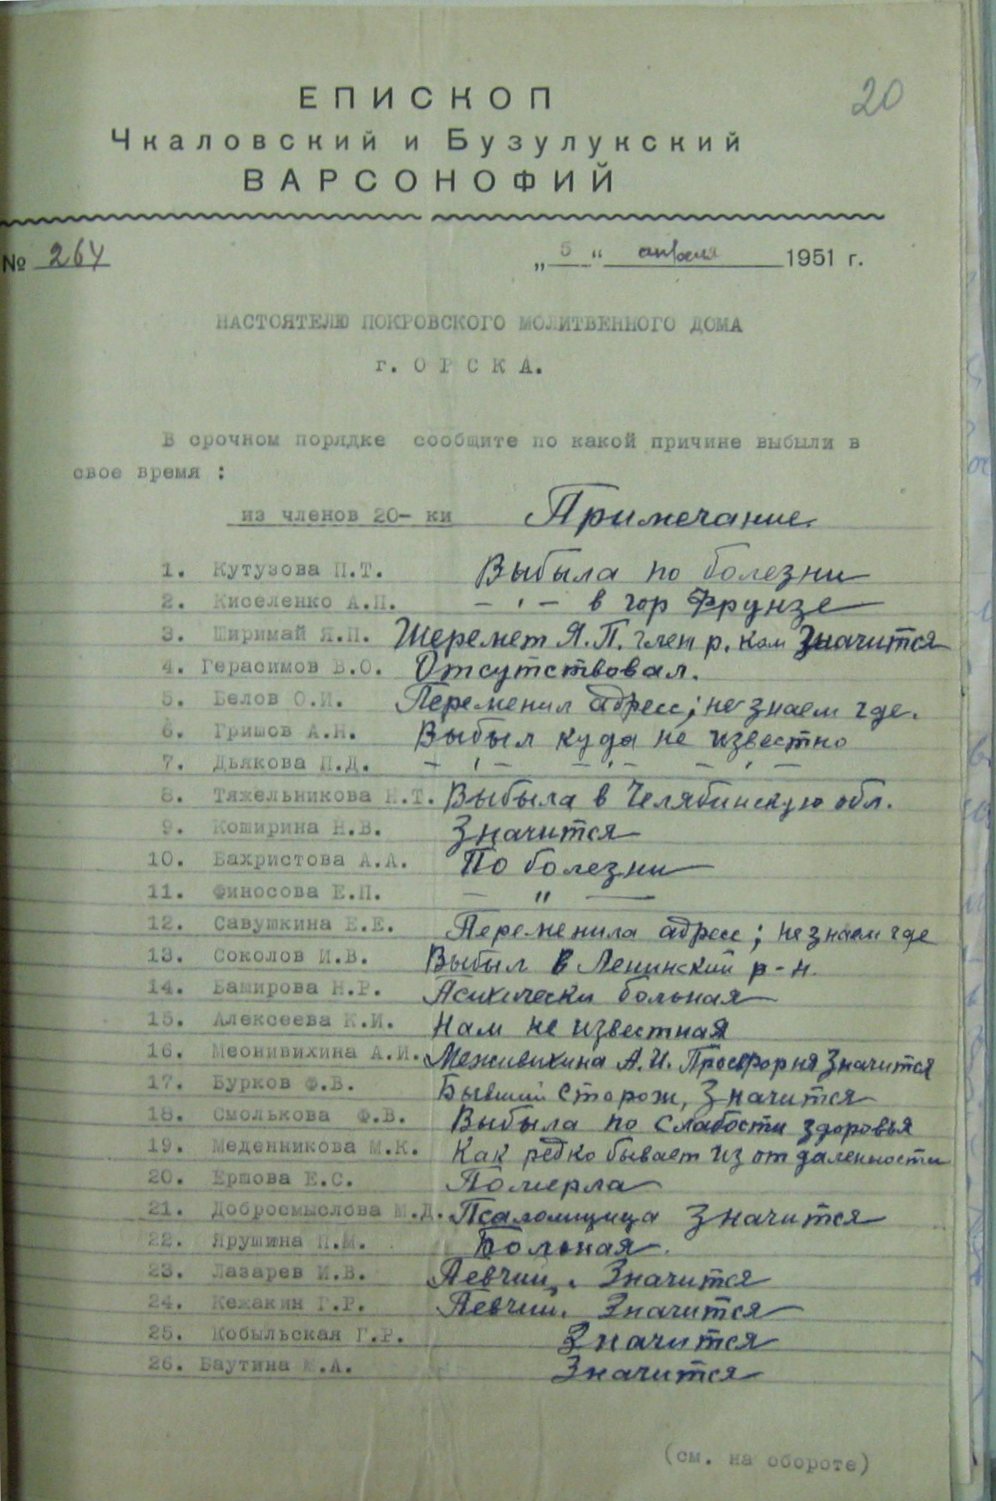 20
ЕПИСКОП
Чкаловский и Бузулукский
ВАРСОНОФИЙ
№ 264 „ 5 “ апреля 1951 г.
НАСТОЯТЕЛЮ ПОКРОВСКОГО МОЛИТВЕННОГО ДОМА
г. О Р С К А.
В срочном порядке сообщите по какой причине выбыли в
свое время :
из членов 20- ки Примечание.
1. Кутузова П.Т. Выбыла по болезни
2. Киселенко А.П. – ' – в гор Фрунзе
3. Ширимай Я.П. Шеремет Я.П. член р. ком Значится
4. Герасимов В.О. Отсутствовал.
5. Белов О.И. Переменил адресс; не знаем где.
6. Гришов А.Н. Выбыл куда не известно
7. Дьякова П.Д. – ' – – ' – – ' –
8. Тяжельникова Н.Т. Выбыла в Челябинскую обл.
9. Коширина Н.В. Значится
10. Бахристова А.А. По болезни
11. Финосова Е.П. – " –
12. Савушкина Е.Е. Переменила адресс; не знаем где
13. Соколов И.В. Выбыл в Ленинский р-н.
14. Баширова Н.Р. Психически больная
15. Алексеева К.И. Нам не известная
16. Меонивихина А.И. Меживихина А.И. Просфорня Значится
17. Бурков Ф.В. Бывший Сторож, Значится
18. Смолькова Ф.В. Выбыла по Слабости здоровья
19. Меденникова М.К. Как редко бывает из отдаленности
20. Ершова Е.С. Померла
21. Добросмыслова М.Д. Псаломщица Значится
22. Ярушина П.М. Больная.
23. Лазарев И.В. Певчий, Значится
24. Кежакин Г.Р. Певчий. Значится
25. Кобыльская Г.Р. Значится
26. Баутина М.А. Значится
(см. на обороте)